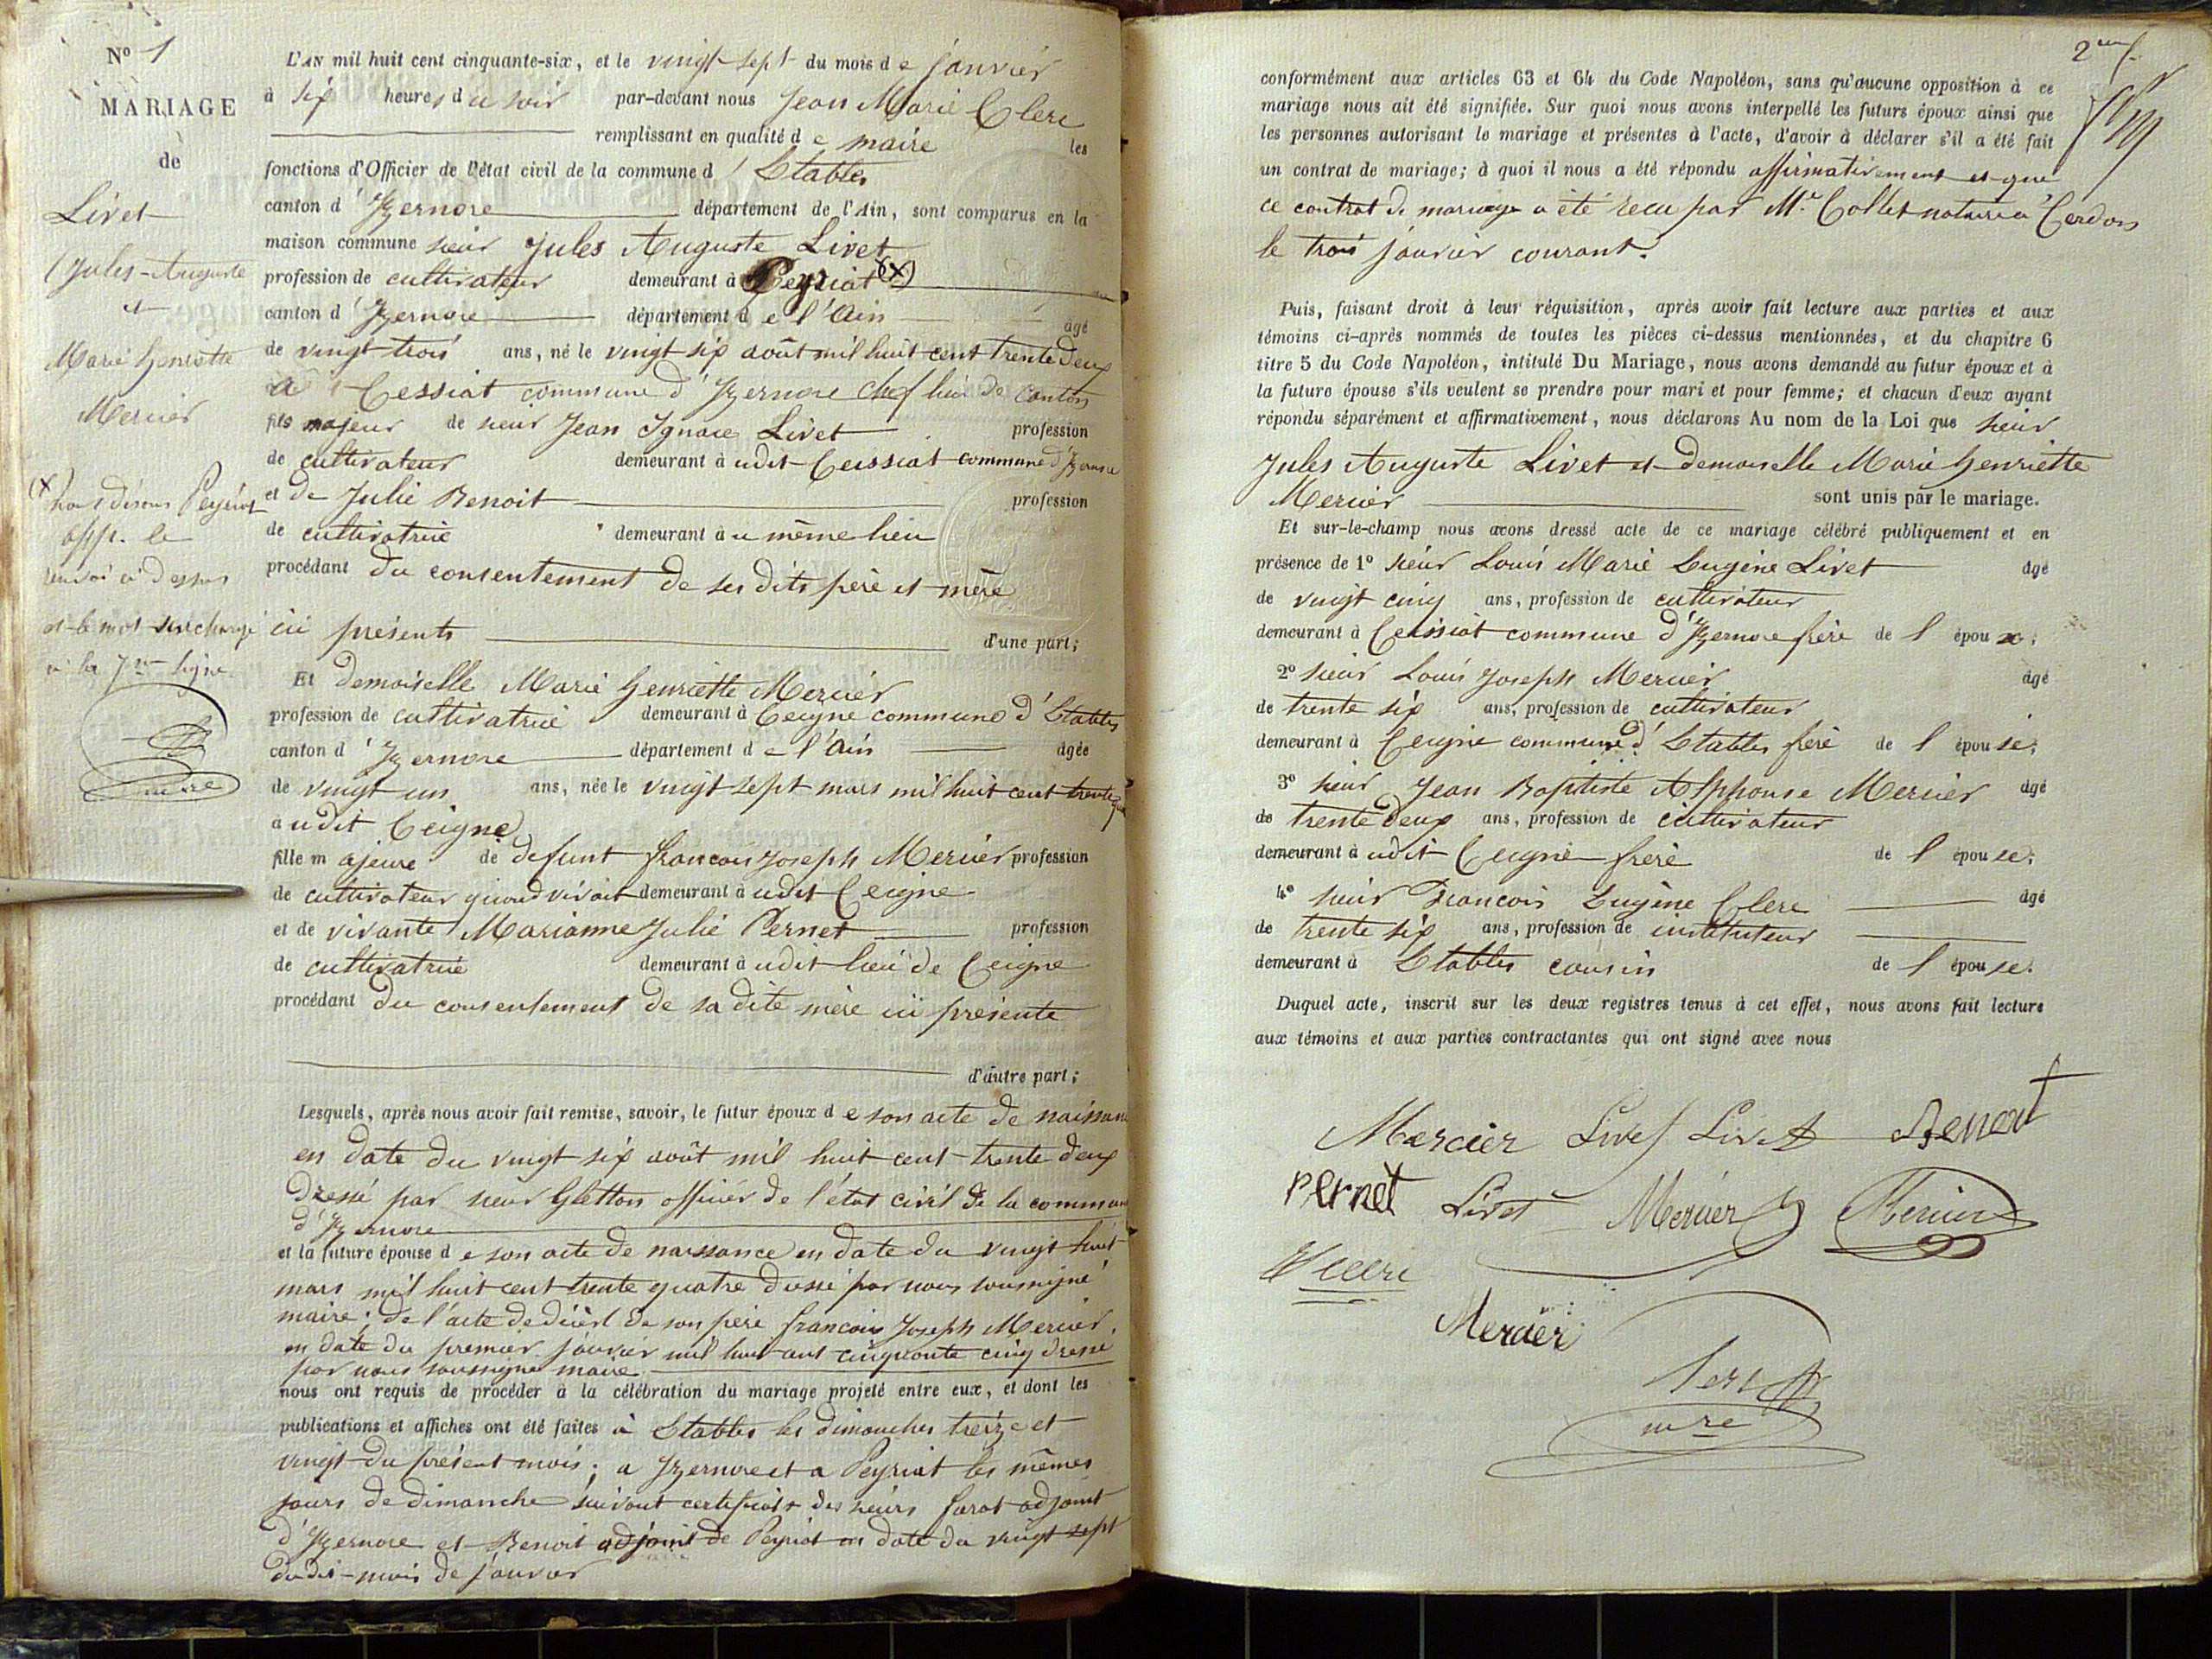 N° 1
MARIAGE
de
Livet
Jules-Auguste
et
Marie henriette
Mercier
(X)
nous disons Peyriat
app. le
renvoi ci dessus
et le mot surchargé
à la 7me ligne
mre
L'AN mil huit cent cinquante-six, et le vingt sept du mois de janvier
à six heures du soir par-devant nous Jean Marie Clerc
remplissant en qualité de maire les
fonctions d'Officier de l'état civil de la commune d'Etables
canton d'Izernore département de l'Ain, sont comparus en la
maison commune sieur Jules Auguste Livet
profession de cultivateur demeurant à Peyriat (X)
canton d'Izernore département de l'Ain âgé
de vingt trois ans, né le vingt six août mil huit cent trente deux
à Cessiat commune d'Izernore chef lieu de canton
fils majeur de sieur Jean Ignace Livet profession
de cultivateur demeurant à udit Ceissiat commune d'Izernore
et de Julie Benoit profession
de cultivatrice demeurant à u même lieu
procédant du consentement de ses dits père et mère
ici présents d'une part;
Et demoiselle Marie henriette Mercier
profession de cultivatrice demeurant à Ceigne commune d'Etables
canton d'Izernore département de l'Ain âgée
de vingt un ans, née le vingt sept mars mil huit cent trente
audit Ceigne
fille majeure de defunt francois Joseph Mercier profession
de cultivateur quand vivait demeurant à udit Ceigne
et de vivante Marianne Julie Pernet profession
de cultivatrice demeurant à udit lieu de Ceigne
procédant du consentement de sa dite mère ici présente
d'autre part;
Lesquels, après nous avoir fait remise, savoir, le futur époux de son acte de naissance
en date du vingt six août mil huit cent trente deux
dressé par sieur Gletton officier de l'état civil de la commune
d'Izernore
et la future épouse de son acte de naissance en date du vingt huit
mars mil huit cent trente quatre dressé par nous soussigné
maire; de l'acte de décès de son père francois Joseph Mercier
en date du premier janvier mil huit cent cinquante cinq dressé
par nous soussigné maire
nous ont requis de procéder à la célébration du mariage projeté entre eux, et dont les
publications et affiches ont été faites à Etables les dimanches treize et
vingt du présent mois; a Izernore et a Peyriat les mêmes
jours de dimanche suivant certificats des sieurs farat adjoint
d'Izernore et Benoit adjoint de Peyriat en date du vingt sept
dudit mois de janvier
2me f.
conformément aux articles 63 et 64 du Code Napoléon, sans qu'aucune opposition à ce
mariage nous ait été signifiée. Sur quoi nous avons interpellé les futurs époux ainsi que
les personnes autorisant le mariage et présentes à l'acte, d'avoir à déclarer s'il a été fait
un contrat de mariage; à quoi il nous a été répondu affirmativement et que
ce contrat de mariage a été recu par Me Collet notaire à Cerdon
le trois janvier courant.
Puis, faisant droit à leur réquisition, après avoir fait lecture aux parties et aux
témoins ci-après nommés de toutes les pièces ci-dessus mentionnées, et du chapitre 6
titre 5 du Code Napoléon, intitulé Du Mariage, nous avons demandé au futur époux et à
la future épouse s'ils veulent se prendre pour mari et pour femme; et chacun d'eux ayant
répondu séparément et affirmativement, nous déclarons Au nom de la Loi que sieur
Jules Auguste Livet et demoiselle Marie henriette
Mercier sont unis par le mariage.
Et sur-le-champ nous avons dressé acte de ce mariage célébré publiquement et en
présence de 1° sieur Louis Marie Eugène Livet âgé
de vingt cinq ans, profession de cultivateur
demeurant à Ceissiat commune d'Izernore frère de l'époux;
2° sieur Louis Joseph Mercier âgé
de trente six ans, profession de cultivateur
demeurant à Ceigne commune d'Etables frère de l'épouse;
3° sieur Jean Baptiste Alphonse Mercier âgé
de trente deux ans, profession de cultivateur
demeurant à udit Ceigne frère de l'épouse;
4° sieur Francois Eugène Clerc âgé
de trente six ans, profession de instituteur
demeurant à Etables cousin de l'épouse.
Duquel acte, inscrit sur les deux registres tenus à cet effet, nous avons fait lecture
aux témoins et aux parties contractantes qui ont signé avec nous
Mercier Livet Livet Benoit
Pernet Livet Mercier Mercier
Clerc
Mercier
Clerc
mre